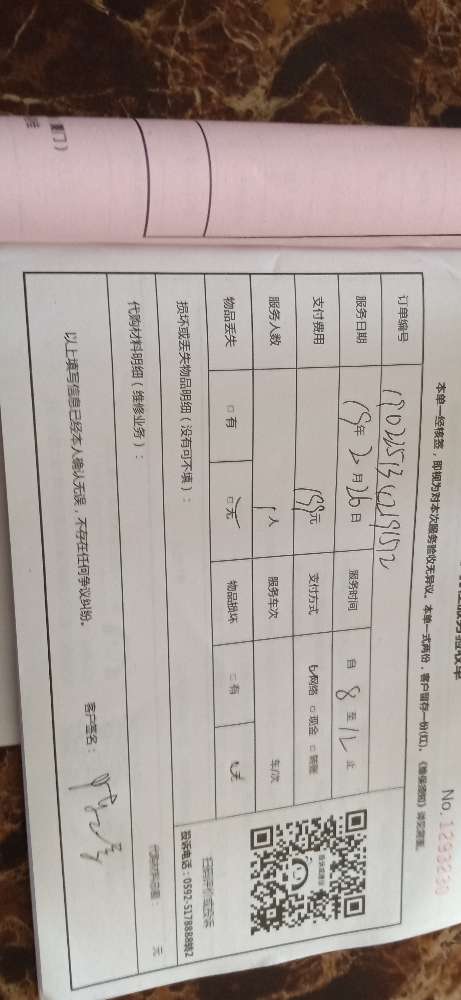 No.1293230
本单一经核签，即视为对本次服务验收无异议。本单一式两份，客户留存一份(红)。
订单编号
服务日期 19年 2月 26日 服务时间 自 8 至 12 止
支付费用 199元 支付方式 网络 □ 现金 □ 转账
服务人数 1人 服务车次 车/次
物品丢失 □ 有 □ 无 物品损坏 □ 有 □ 无
损坏或丢失物品明细（没有可不填）：
扫码评价或投诉
投诉电话：0592-5178888转2
代购材料明细（维修业务）：
代购材料总额： 元
以上填写信息已经本人确认无误，不存在任何争议纠纷。
客户签名：
厦门）